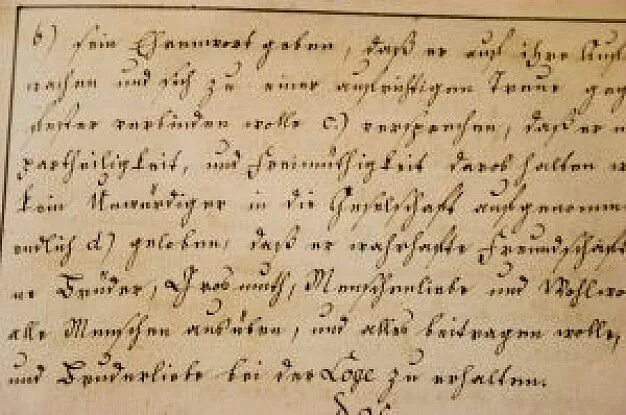 b) sein Ehrenwort geben, daß er auf ihre Auf
machen und sich zu einer aufrichtigen Treue geg
dieser verbinden wolle c.) versprechen, daß er
partheiligkeit, und Freimüthigkeit darob halten
kein Unwürdiger in die Gesellschaft aufgenomme
endlich d) geloben, daß er wahrhafte Freundschaft
ne Brüder, Grosmuth, Menschenliebe und Wohlwo
alle Menschen ausüben, und alles beitragen wolle,
und Bruderliebe bei der Loge zu erhalten.